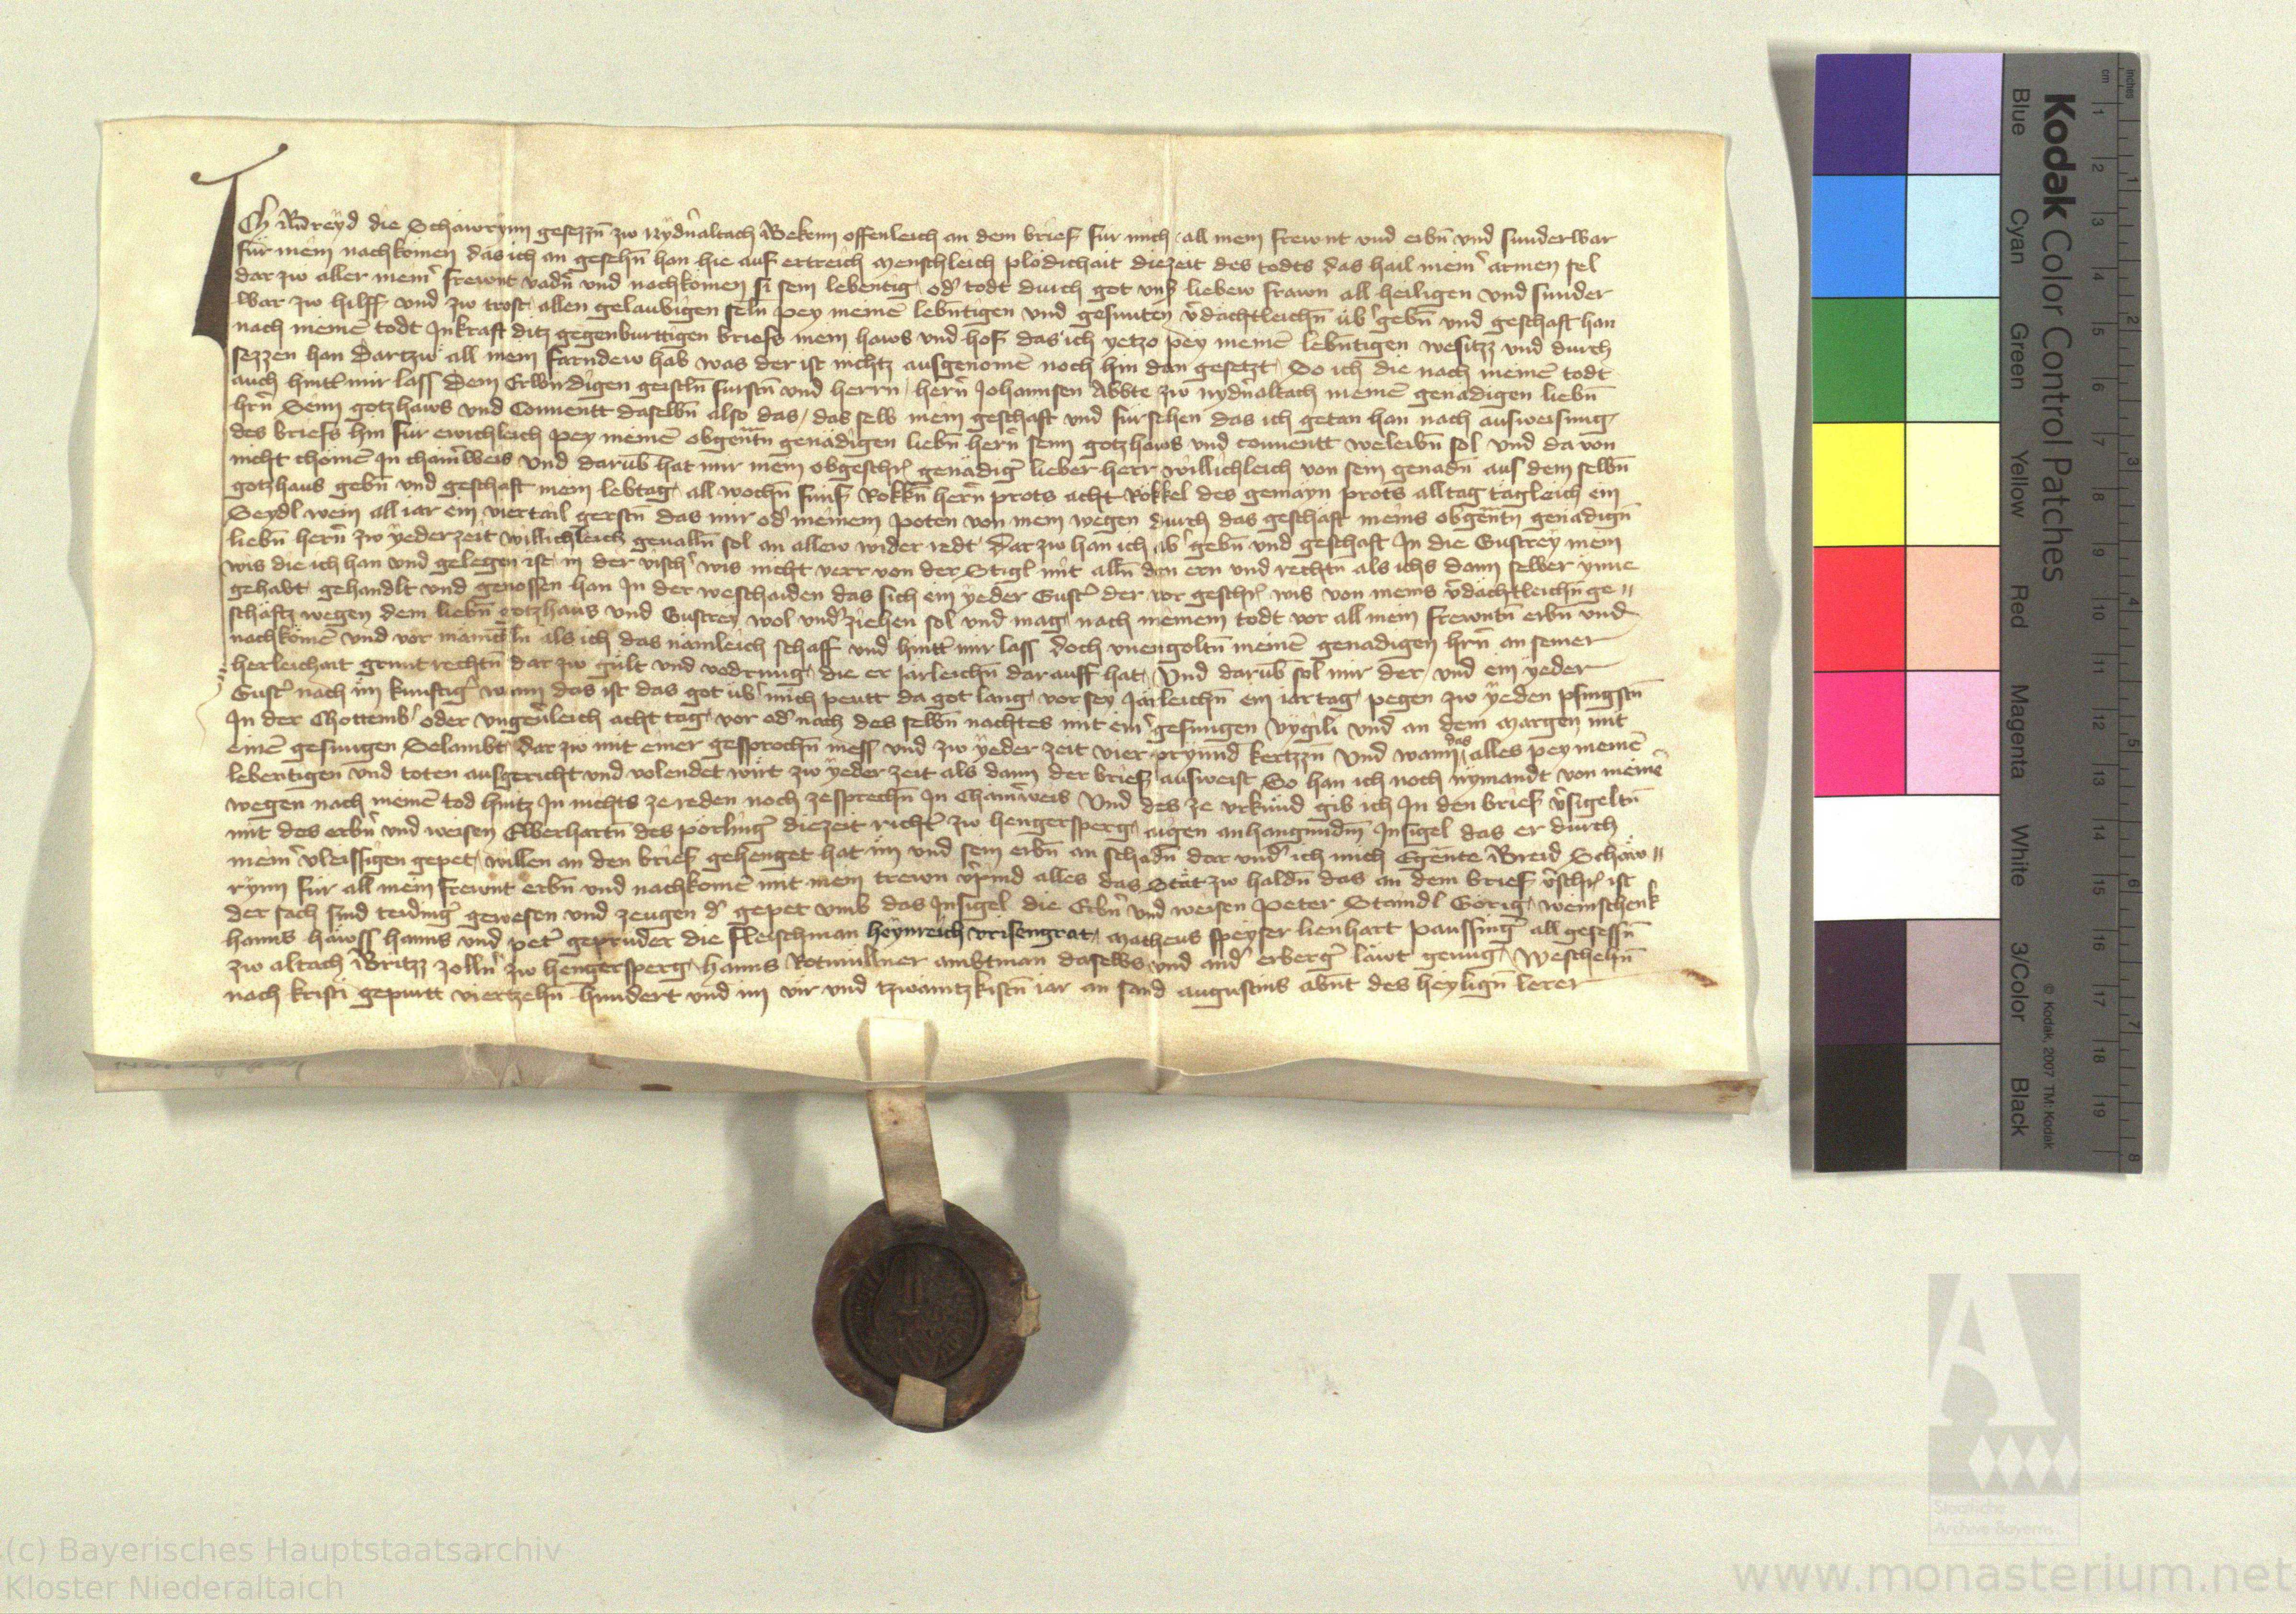 Ich Breyd die Schawrynn gesezzn̄ zw nydn̄altach Bekenn offenleich an dem brief fur mich all mein frewnt vnd erbn̄ vnd sunderwar
fur mein nachkömen das ich an gesehn̄ han hie auf ertreich menschleich plödichait diezeit des todts das hail meinˀ armen sel
dar zw aller meinˀ frewnt vadn̄ vnd nachkömen si sein lebentig odˀ todt durch got vnsˀ liebew frawn all heiligen vnd sunder
war zw hilff vnd zw trost allen gelaubigen seln pey meinē lebntigen vnd gesunten v̄dächtleichn̄ übˀ gebn̄ vnd geschaft han
nach meinē todt Inkraft ditz gegenburttigen briefs mein haws vnd hof das ich yetzo pey meinē lebntigen wesitzz vnd durch
sezzen han Dartzw all mein farndew hab was der ist nichtz ausgenomē noch hin dan gesetzt So ich die nach meinē todt
auch hintˀ mir lass Dem Erwirdigen geistln̄ furstn̄ vnd herrn hern̄ Johannsen Abbte zw nydn̄altach meinē genädigen liebn̄
hrn̄ Seim gotzhaws vnd Conuentt daselbn̄ also das das selb mein geschaft vnd fursehen das ich getan han nach ausweisung
des briefs hin fur ewichleich pey meinē obgen̄tn̄ genädigen liebn̄ hern̄ seim gotzhaws vnd conuentt weleibn̄ sol vnd da von
nicht chömē In chain̄weis vnd darūb hat mir mein obgeschrˀ genädigˀ lieber herr willichleich von sein genadn̄ aus dem selbn̄
gotzhaus gebn̄ vnd geschaft mein lebtag all wochn̄ funf Rokkn̄ hern̄ prots acht Rökkel des gemäyn prots alltag tägleich ein
Seydl wein all iar ein viertail gerstn̄ das mir odˀ meinem poten von mein wegen durch das geschäft meins obgen̄tn̄ genädign̄
liebn̄ hern̄ zw yeder zeit willichleich geualln̄ sol an allew wider redt Dar zw han ich übˀ gebn̄ vnd geschaft In die Gustrey mein
wis die ich han vnd gelegen ist in der vischˀ wis nicht verr von der Stigl mit alln̄ den ern vnd rechtn̄ als ichs dann selber ynne
gehabt gehandlt vnd genossen han In der weschaiden das sich ein yeder Gustˀ der vor geschrˀ wis von meins v̄dächtleichn̄ ge〃
schäftz wegen dem liebn̄ gotzhaus vnd Gustrey wol vndˀ ziehen sol vnd mag nach meinem todt vor all mein frewntn̄ erbn̄ vnd
nachkömē vnd vor mänichln̄ als ich das nämleich schaff vnd hintˀ mir lass doch vnengoltn̄ meinē genadigen hrn̄ an seiner
herleichait gruntrechtn̄ dar zw gült vnd vodrung die er Järleichn̄ darauff hat Vnd darūb sol mir der vnd ein yeder
Gustˀ nach im kunftigˀ wann das ist das got übˀ mich peutt da got lang vor sey Järleichn̄ ein iartag pegen zw yeden pfingstn̄
In der Chottembˀ oder vngeūleich acht tag vor odˀ nach des selbn̄ nachtes mit einˀ gesungen vygili vnd an dem margen mit
einē gesungen Selambt dar zw mit einer gesprochn̄ mess vnd zw yeder zeit vier prynnd kertzzn̄ Vnd wann das alles pey meinē
lebentigen vnd toten ausgericht vnd volendet wirt zw yeder zeit als dann der brief ausweist So han ich noch nymandt von meinē
wegen nach meinē tod hintz In nichts ze reden noch zesprechn̄ In Chain̄weis Vnd des ze vrkund gib ich In den brief v̄sigeltn̄
mit des erbn̄ vnd weisen Eberhartn̄ des pörlingˀ diezeit richtˀ zw hengersperg aigen anhangundm̄ Insigel das er durch
meinˀ vleissigen gepet willen an den brief gehenget hat im vnd sein erbn̄ an schadn̄ dar vndˀ ich mich Egen̄te Breid Schäw〃
rynn für all mein frewnt erbn̄ vnd nachkomē mit mein trewn v̄pind alles das Stät zw haldn̄ das an dem brief v̄schrˀ ist
der sach sind teidingˀ gewesen vnd zeugen dˀ gepet vmb das Insigel die Erbn̄ vnd weisen Peter Staindl Görig weinschenk
hanns häwss hanns vnd petˀ geprüder die fleischman heynreich vrisengrat Matheus speyser lienhart paussingˀ all gesessn̄
zw altach Britzz zollnˀ zw hengersperg hanns Rotmüllner ambtman daselbs vnd andˀ erbergˀ läwt genug Weschehn̄
nach kristi gepurtt viertzehn̄ hundert vnd im vir vnd tzwaintzkistn̄ iar an sand augustins abn̄t des heylign̄ lerer
Kodak Color Control Patches
Blue Cyan Green Yellow Red Magenta White 3/Color Black
© Kodak, 2007 TM: Kodak
inches 1 2 3 4 5 6 7 8
cm 1 2 3 4 5 6 7 8 9 10 11 12 13 14 15 16 17 18 19
Staatliche
Archive Bayerns
(c) Bayerisches Hauptstaatsarchiv
Kloster Niederaltaich
www.monasterium.net